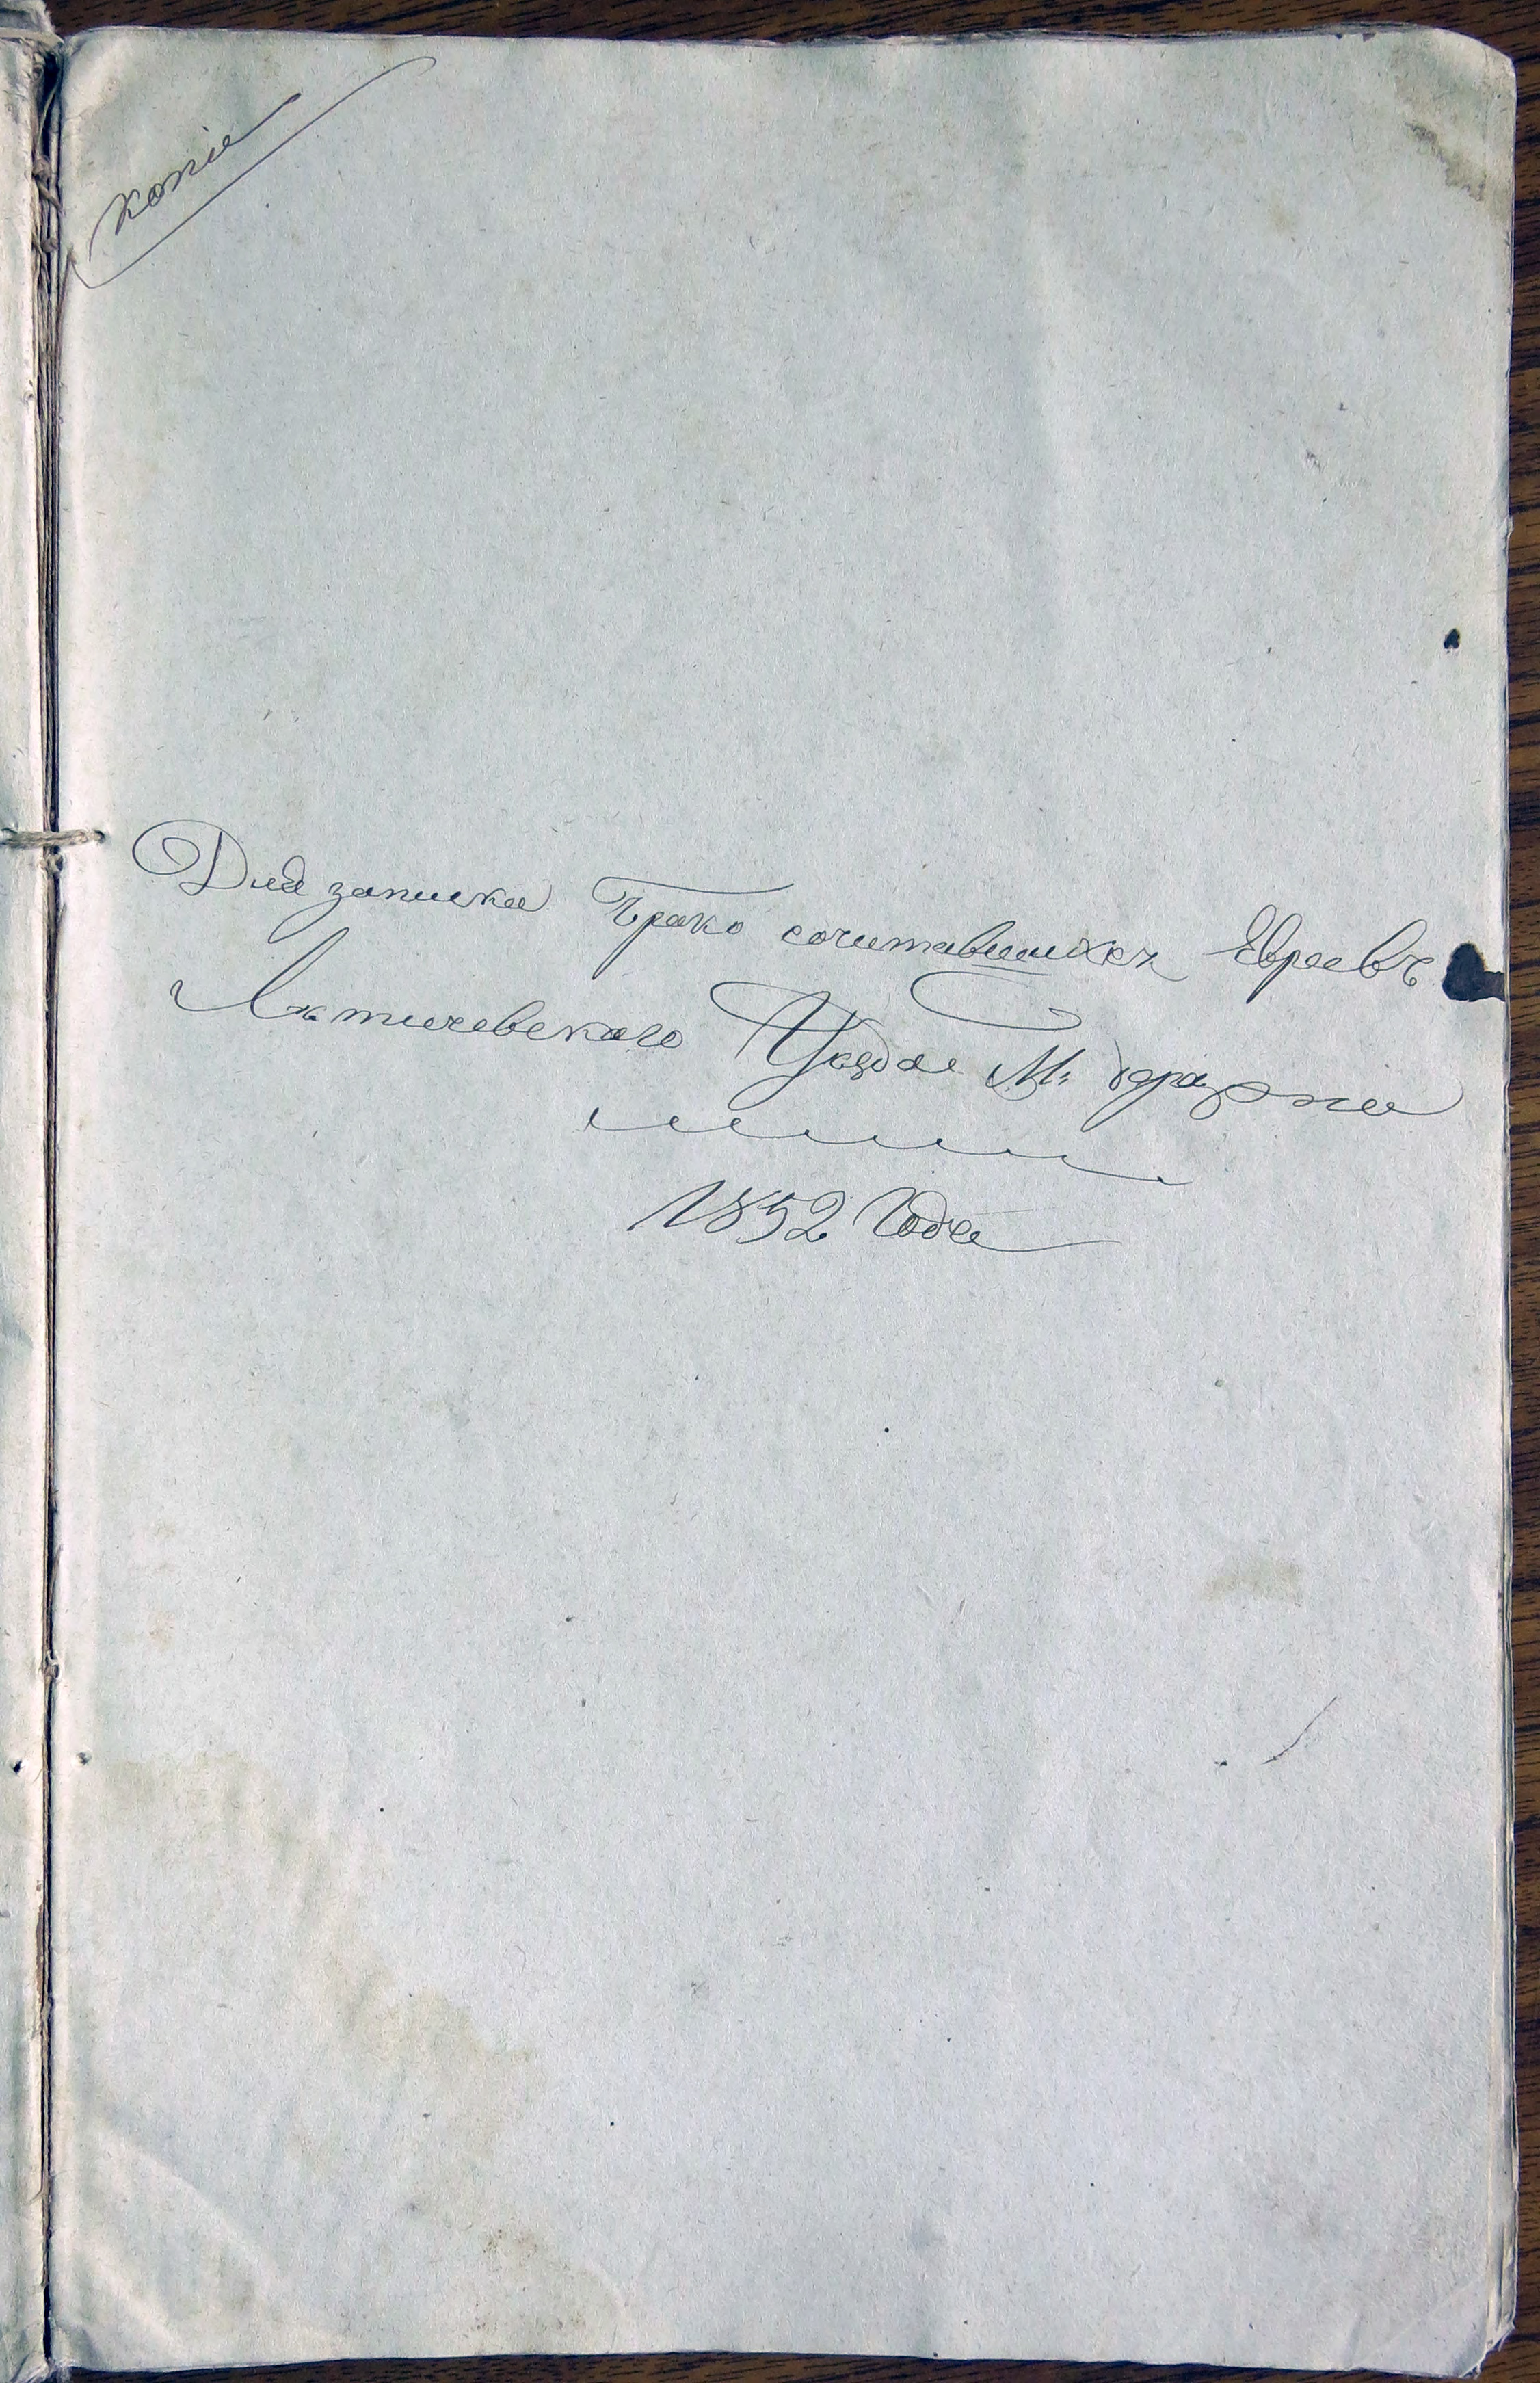 копіе
Для записки Брако сочитавшихся Евреевъ
Лятичевского Уезда М. Деражни
1852 Года